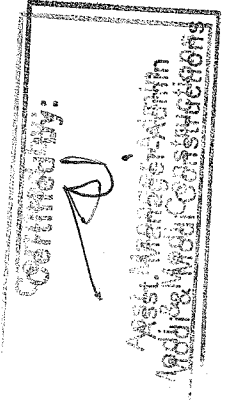 Certified by:
Asst. Manager-Admin
Modul & Modul Constructions